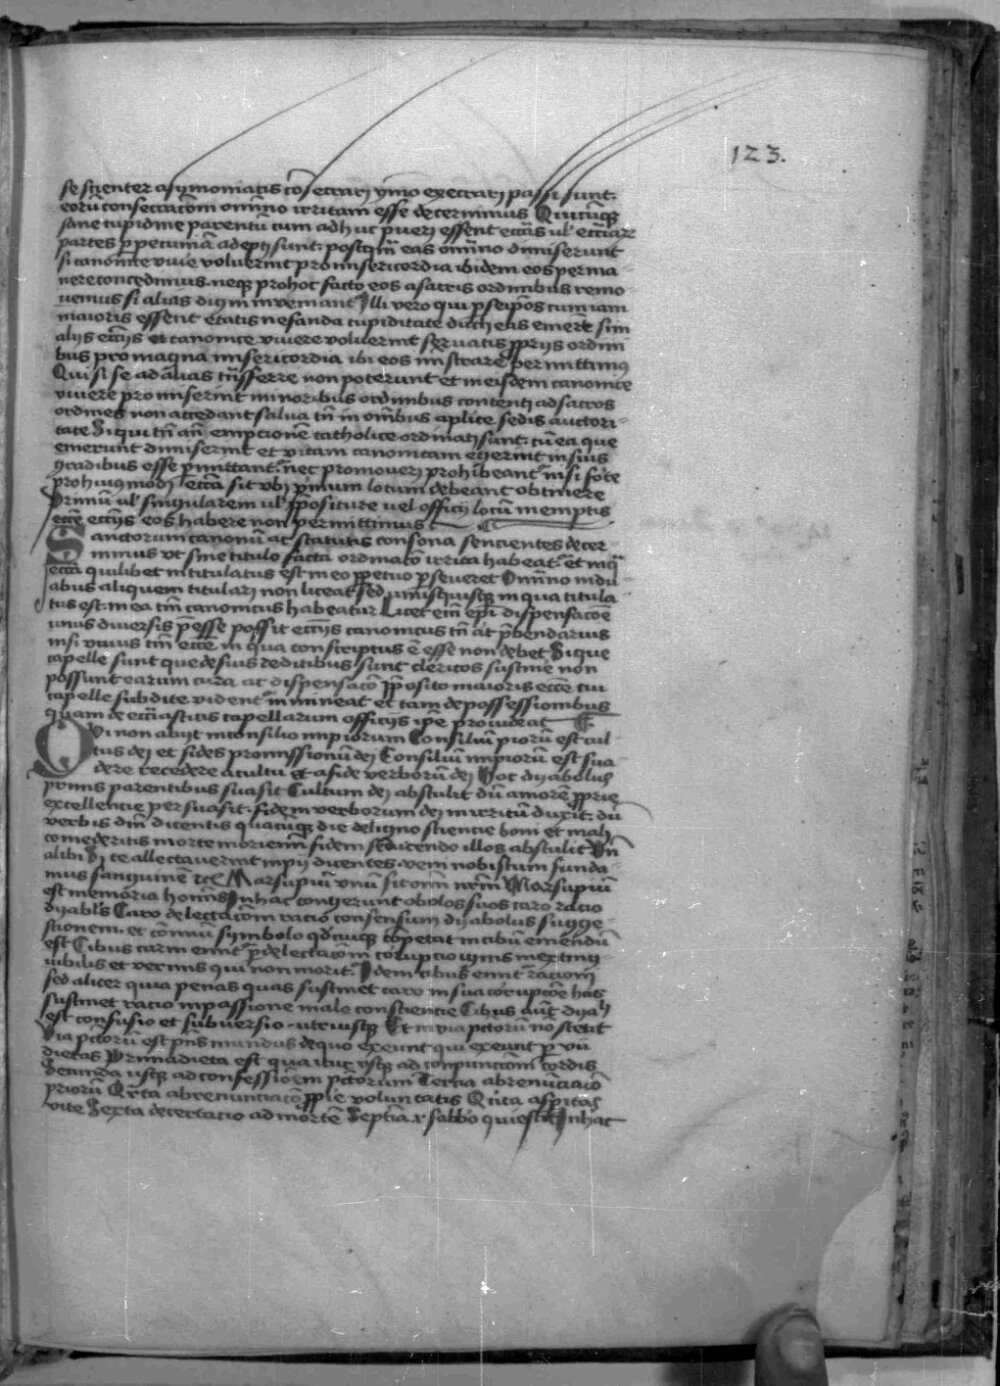 123.
se scienter a symoniacis cōsecrari ymo execrari passi sunt.
eorū consecracōm omīno irritam esse decernimus Quicūq
sane cupidine parentū cum adhuc pueri essent eccās ul' ecciār
partes p pecuniā adepti sunt. postqm̄ eas omīno dimiserunt
si canonice viuē voluerint pro misericordia ibidem eos perma
nere concedimus. neq prohoc facto eos a sacris ordinibus remo
uemus si alias digni inveniant Illi vero qui p seipōs cum iam
maioris essent etatis nefanda cupiditate ducti eas emerēt sim
alijs eccijs et canonice vivere voluerint servatis pprijs ordini
bus pro magna misericordia ibi eos mistrare permittimus
Qui si se ad alias tnsferre non poterunt et in eisdem canonice
vivere promiserint minoribus ordinibus contenti ad sacros
ordines non accedant salua tn̄ in omībus aplice sedis auctori
tate Siqui tn̄ an̄ empcionē catholice ordinati sunt. cū ea que
emerunt dimiserint et vitam canonicam egerint in suis
gradibus esse pmittant. nec promoveri prohibeant nisi forte
prohuiusmodi eccīa sit ubi primum locum debeant obtinere
Primū ul' singularem ul' ppositure vel officij locū in emptis
eccē eccijs eos habere non permittimus
Sanctorum canonū ac statutis consona sencientes decer
nimus vt sine titulo facta ordinacō irrita habeat. et in q
eccā quilibet intitulatus est in eo ppetuo pseveret Omīno in du
abus aliquem titulari non liceat sed unusquisq in qua titula
tus est. in ea tm̄ canonicus habeatur Licet em̄ epī dispensacōe
unus diuersis pēsse possit eccijs canonicus tn̄ aut pbendarius
nisi unius tm̄ eccē in qua conscriptus ē esse non debet Sique
capelle sunt que de suis redditibus suos clericos sustinē non
possunt earum cura ac dispensacō pposito maioris eccē cui
capelle subdite vident inmineat et tam de possessionibus
quam de ecclīasticis capellarum officijs ipē prouideat
Qvi non abijt in consilio impiorum Consiliū piorū est cul
tus dei et fides promissionū dei Consiliū impiorū est sua
dere recedere a cultu et a fide verborū dei Hoc dyabolus
primis parentibus suasit Cultum dei abstulit dū amorē pprie
excellencie persuasit. fidem verborum dei in irritū duxit. dū
verbis dni dicentis quacūq die de ligno sciencie boni et mali
comederitis morte moriemī fidem seducendo illos abstulit Vn̄
alibi Si te allectaverint impij dicentes. veni nobiscum funda
mus sanguinē &c Marsupiū vnū sit omī nrm̄ Marsupiū
est memoria homīs In hac congerunt obolos suos caro racio
dyabls Caro delectacōm racio consensum dyabolus sugge
stionem. et cōmuī symbolo qd cuiq cōpetat in cibū emendū
est Cibus carni erint p delectacōm corupcio ignis inextingu
ibilis et vermis qui non morit. Idem cibus erint racioni
sed aliter quia penas quas sustinet caro in sua corupcōe has
sustinet racio in passione male consciencie Cibus aut dyab
est confusio et subversio utriusq Et in via pctorū nō stetit
Via pctorū est pns mundus de quo exeunt qui exeunt p vii
dietas Prima dieta est qua itur usq ad conpunccōm cordis
Secunda usq ad confessiōem pctorum Tercia abrenūciacio
priorū Qrta abrenunciacō pprie voluntatis Qnta aspitas
vite Sexta decertacio ad mortē Septīa r sabbo quiescit In hac